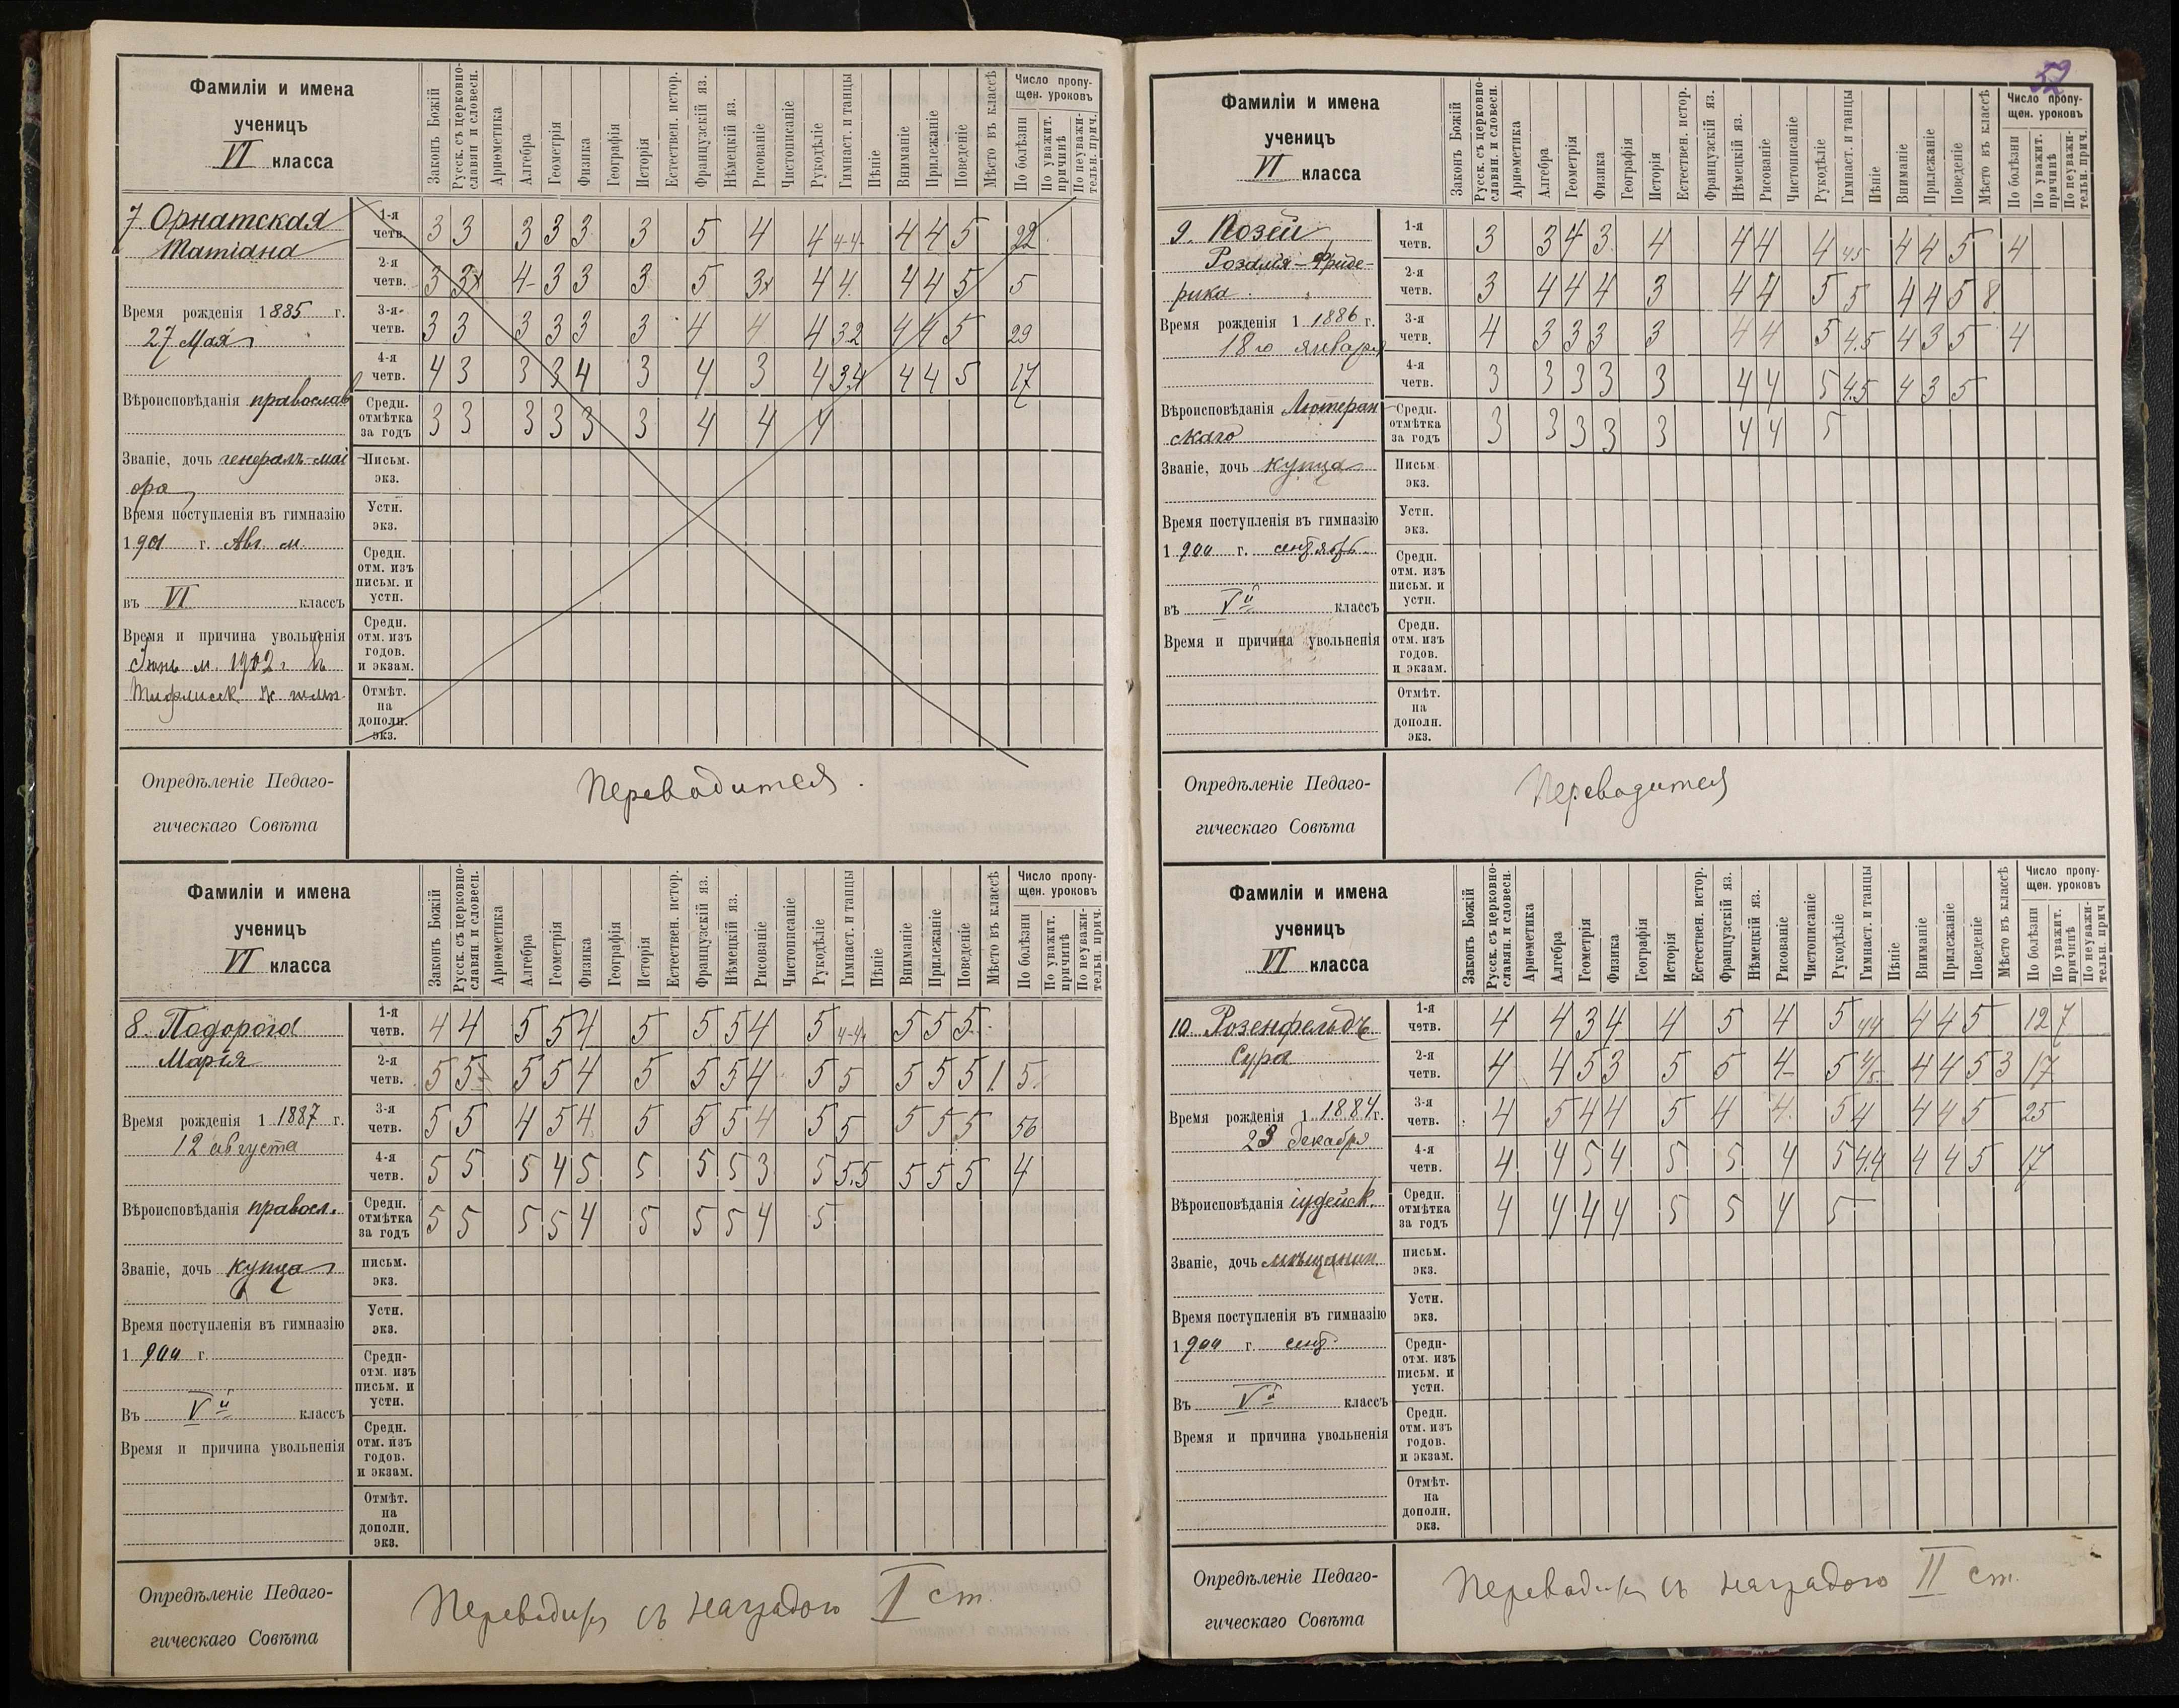 52
Фамиліи и имена
ученицъ
VI класса
Законъ Божій
Русск. съ церковно-
славян и словесн.
Ариѳметика
Алгебра
Геометрія
Физика
Географія
Исторія
Естествен. истор.
Французскій яз.
Нѣмецкій яз.
Рисованіе
Чистописаніе
Рукодѣліе
Гимнаст. и танцы
Пѣніе
Вниманіе
Прилежаніе
Поведеніе
Мѣсто въ классѣ
Число пропу-
щен. уроковъ
По болѣзни
По уважит.
причинѣ
По неуважи-
тельн. прич.
7 Орнатская
Татіана
Время рожденія 1885 г.
27 Мая
Вѣроисповѣданія православ
Званіе, дочь генералъ-маі
ора
Время поступленія въ гимназію
1901 г. Авг. м.
въ VI классъ
Время и причина увольненія
Іюнь м. 1902 г. въ
1-я четв. 3 3 3 3 3 3 5 4 4 4-4 4 4 5 22
2-я четв. 3 3 4 3 3 3 5 3 4 4 4 4 5 5
3-я четв. 3 3 3 3 3 3 4 4 4 3.2 4 4 5 29
4-я четв. 4 3 3 3 4 3 4 3 4 3.4 4 4 5 17
Средн. отмѣтка за годъ 3 3 3 3 3 3 4 4 4
Письм. экз.
Устн. экз.
Средн. отм. изъ письм. и устн.
Средн. отм. изъ годов. и экзам.
Отмѣт. на дополн. экз.
Опредѣленіе Педаго-
гическаго Совѣта
Переводится.
Фамиліи и имена
ученицъ
VI класса
Законъ Божій
Русск. съ церковно-
славян и словесн.
Ариѳметика
Алгебра
Геометрія
Физика
Географія
Исторія
Естествен. истор.
Французскій яз.
Нѣмецкій яз.
Рисованіе
Чистописаніе
Рукодѣліе
Гимнаст. и танцы
Пѣніе
Вниманіе
Прилежаніе
Поведеніе
Мѣсто въ классѣ
Число пропу-
щен. уроковъ
По болѣзни
По уважит.
причинѣ
По неуважи-
тельн. прич.
8. Подорога
Марія
Время рожденія 1 1887 г.
12 августа
Вѣроисповѣданія правосл.
Званіе, дочь купца
Время поступленія въ гимназію
1 900 г.
Въ Vй классъ
Время и причина увольненія
1-я четв. 4 4 5 5 4 5 5 5 4 5 4-4 5 5 5
2-я четв. 5 5 5 5 4 5 5 5 4 5 5 5 5 5 1 5
3-я четв. 5 5 4 5 4 5 5 5 4 5 5 5 5 5 56
4-я четв. 5 5 5 4 5 5 5 5 3 5 5.5 5 5 5 4
Средн. отмѣтка за годъ 5 5 5 5 4 5 5 5 4 5
письм. экз.
Устн. экз.
Средн- отм. изъ письм. и устн.
Средн. отм. изъ годов. и экзам.
Отмѣт. на дополн. экз.
Опредѣленіе Педаго-
гическаго Совѣта
Переводится съ наградою I ст.
Фамиліи и имена
ученицъ
VI класса
Законъ Божій
Русск. съ церковно-
славян. и словесн.
Ариѳметика
Алгебра
Геометрія
Физика
Географія
Исторія
Естествен. истор.
Французскій яз.
Нѣмецкій яз.
Рисованіе
Чистописаніе
Рукодѣліе
Гимнаст. и танцы
Пѣніе
Вниманіе
Прилежаніе
Поведеніе
Мѣсто въ классѣ
Число пропу-
щен. уроковъ
По болѣзни
По уважит.
причинѣ
По неуважи-
тельн. прич.
9. Позей
Розалія-Фриде-
рика.
Время рожденія 1 1886 г.
18го января
Вѣроисповѣданія Лютеран
скаго
Званіе, дочь купца
Время поступленія въ гимназію
1 900 г. сентябрь.
въ Vй классъ
Время и причина увольненія
1-я четв. 3 3 4 3 4 4 4 4 4 5 4 4 5 4
2-я четв. 3 4 4 4 3 4 4 5 5 4 4 5 8
3-я четв. 4 3 3 3 3 4 4 5 4.5 4 3 5 4
4-я четв. 3 3 3 3 3 4 4 5 4.5 4 3 5
Средн. отмѣтка за годъ 3 3 3 3 3 4 4 5
Письм экз.
Устн. экз.
Средн. отм. изъ письм. и устн.
Средн. отм. изъ годов. и экзам.
Отмѣт. на дополн. экз.
Опредѣленіе Педаго-
гическаго Совѣта
Переводится
Фамиліи и имена
ученицъ
VI класса
Законъ Божій
Русск. съ церковно-
славян. и словесн.
Ариѳметика
Алгебра
Геометрія
Физика
Географія
Исторія
Естествен. истор.
Французскій яз.
Нѣмецкій яз.
Рисованіе
Чистописаніе
Рукодѣліе
Гимнаст. и танцы
Пѣніе
Вниманіе
Прилежаніе
Поведеніе
Мѣсто въ классѣ
Число пропу-
щен. уроковъ
По болѣзни
По уважит.
причинѣ
По неуважи-
тельн. прич
10. Розенфельдъ
Сура
Время рожденія 1 1884 г.
23 декабря
Вѣроисповѣданія іудейск.
Званіе, дочь мѣщанин
Время поступленія въ гимназію
1 900 г. сент.
Въ Vй классъ
Время и причина увольненія
1-я четв. 4 4 3 4 4 5 4 5 4 4 4 4 5 12 7
2-я четв. 4 4 5 3 5 5 4 5 4/5 4 4 5 3 17
3-я четв. 4 5 4 4 5 4 4 5 4 4 4 5 25
4-я четв. 4 4 5 4 5 5 4 5 4.4 4 4 5 17
Средн. отмѣтка за годъ 4 4 4 4 5 5 4 5
письм. экз.
Устн. экз.
Средн- отм. изъ письм. и устн.
Средн. отм. изъ годов. и экзам.
Отмѣт. на дополн. экз.
Опредѣленіе Педаго-
гическаго Совѣта
Переводится съ наградою II ст.